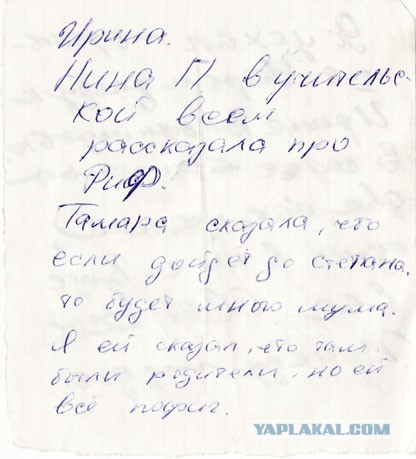 Ирина.
Нина П в учительс-
кой всем
рассказала про
Риф.
Тамара сказала, что
если дойдёт до степана,
то будет много шума.
Я ей сказал, что там
были родители, но ей
всё пофиг.
YAPLAKAL.COM